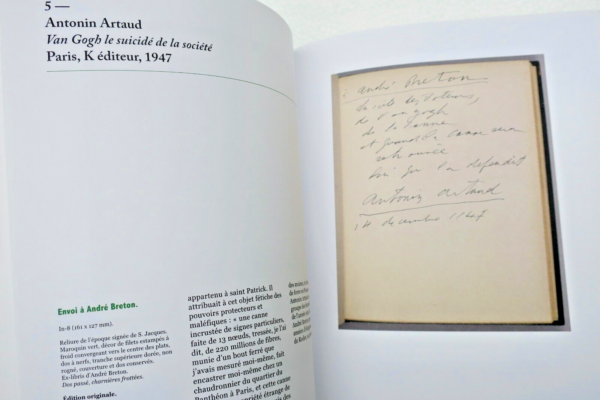 5 —
Antonin Artaud
Van Gogh le suicidé de la société
Paris, K éditeur, 1947
Envoi à André Breton.
In-8 (161 x 127 mm).
Reliure de l'époque signée de S. Jacques.
Maroquin vert, décor de filets estampés à
froid convergeant vers le centre des plats,
dos à nerfs, tranche supérieure dorée, non
rogné, couverture et dos conservés.
Ex-libris d'André Breton.
Dos passé, charnières frottées.
Édition originale.
appartenu à saint Patrick. Il
attribuait à cet objet fétiche des
pouvoirs protecteurs et
maléfiques : « une canne
incrustée de signes particuliers,
faite de 13 nœuds, tressée, je l'ai
dit, de 220 millions de fibres,
munie d'un bout ferré que
j'avais mesuré moi-même, fait
encastrer moi-même chez un
chaudronnier du quartier du
Panthéon à Paris, et cette canne
à André Breton
de Van Gogh
de la canne
et
qui l'a défendit
Antonin Artaud
14 décembre 1947